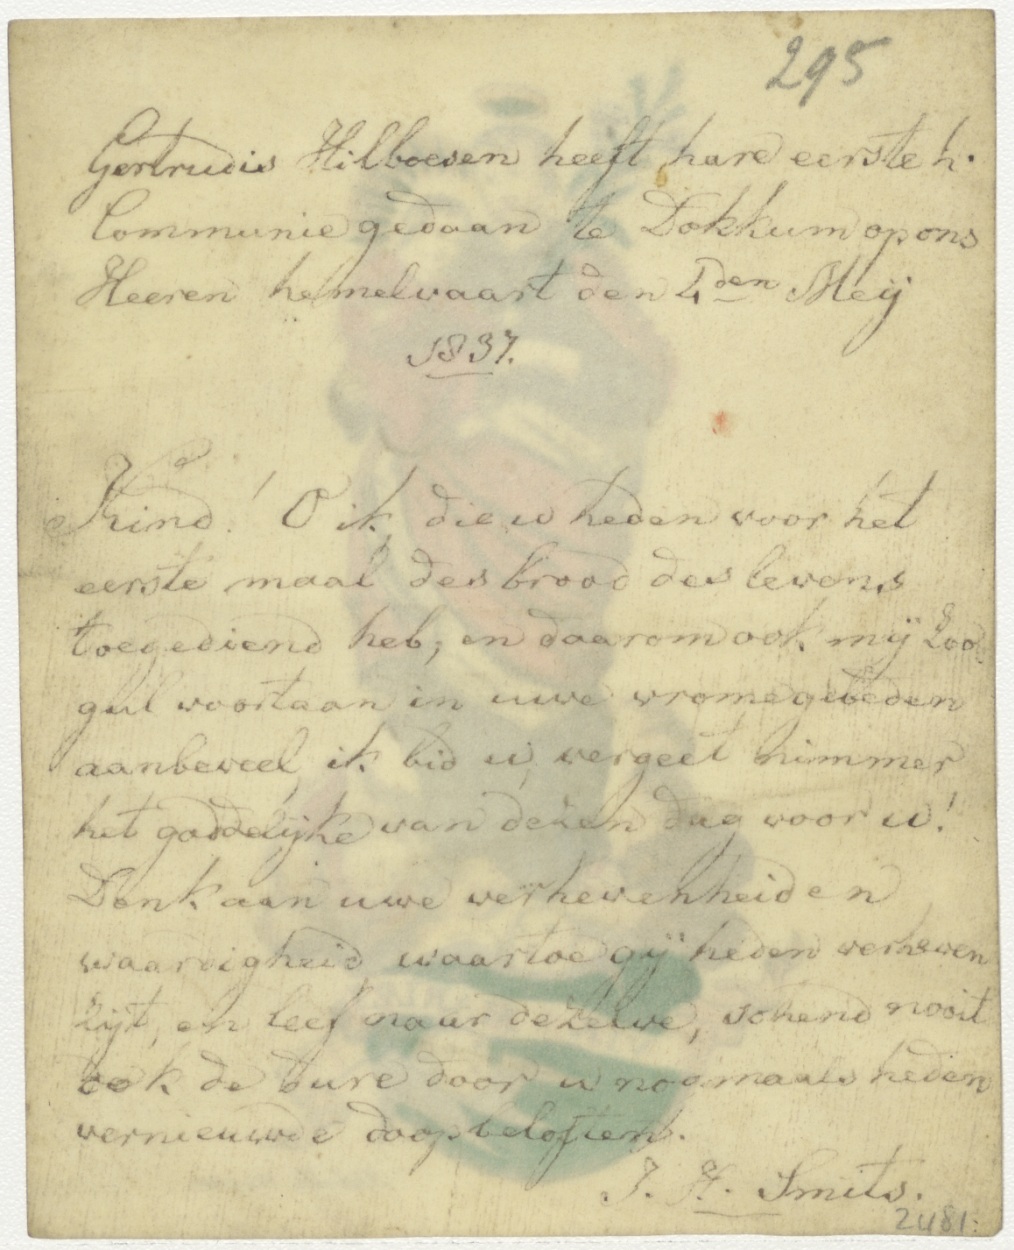 295
Gertrudis Hilboesen heeft hare eerste h.
Communie gedaan te Dokkum op ons
Heeren hemelvaart den 4den Meij
1837.
Kind! O ik, die u heden voor het
eerste maal des brood des levens
toegediend heb, en daarom ook mij zoo
gul voortaan in uwe vrome gebeden
aanbeveel, ik bid u, vergeet nimmer
het goddelijke van dezen dag voor u!
Denk aan uwe verhevenheid en
waardigheid waartoe gij heden verheven
zijt, en leef naar dezelve, schend nooit
ook de dure door u nogmaals heden
vernieuwde doopbeloften.
J. H. Smits.
2481.